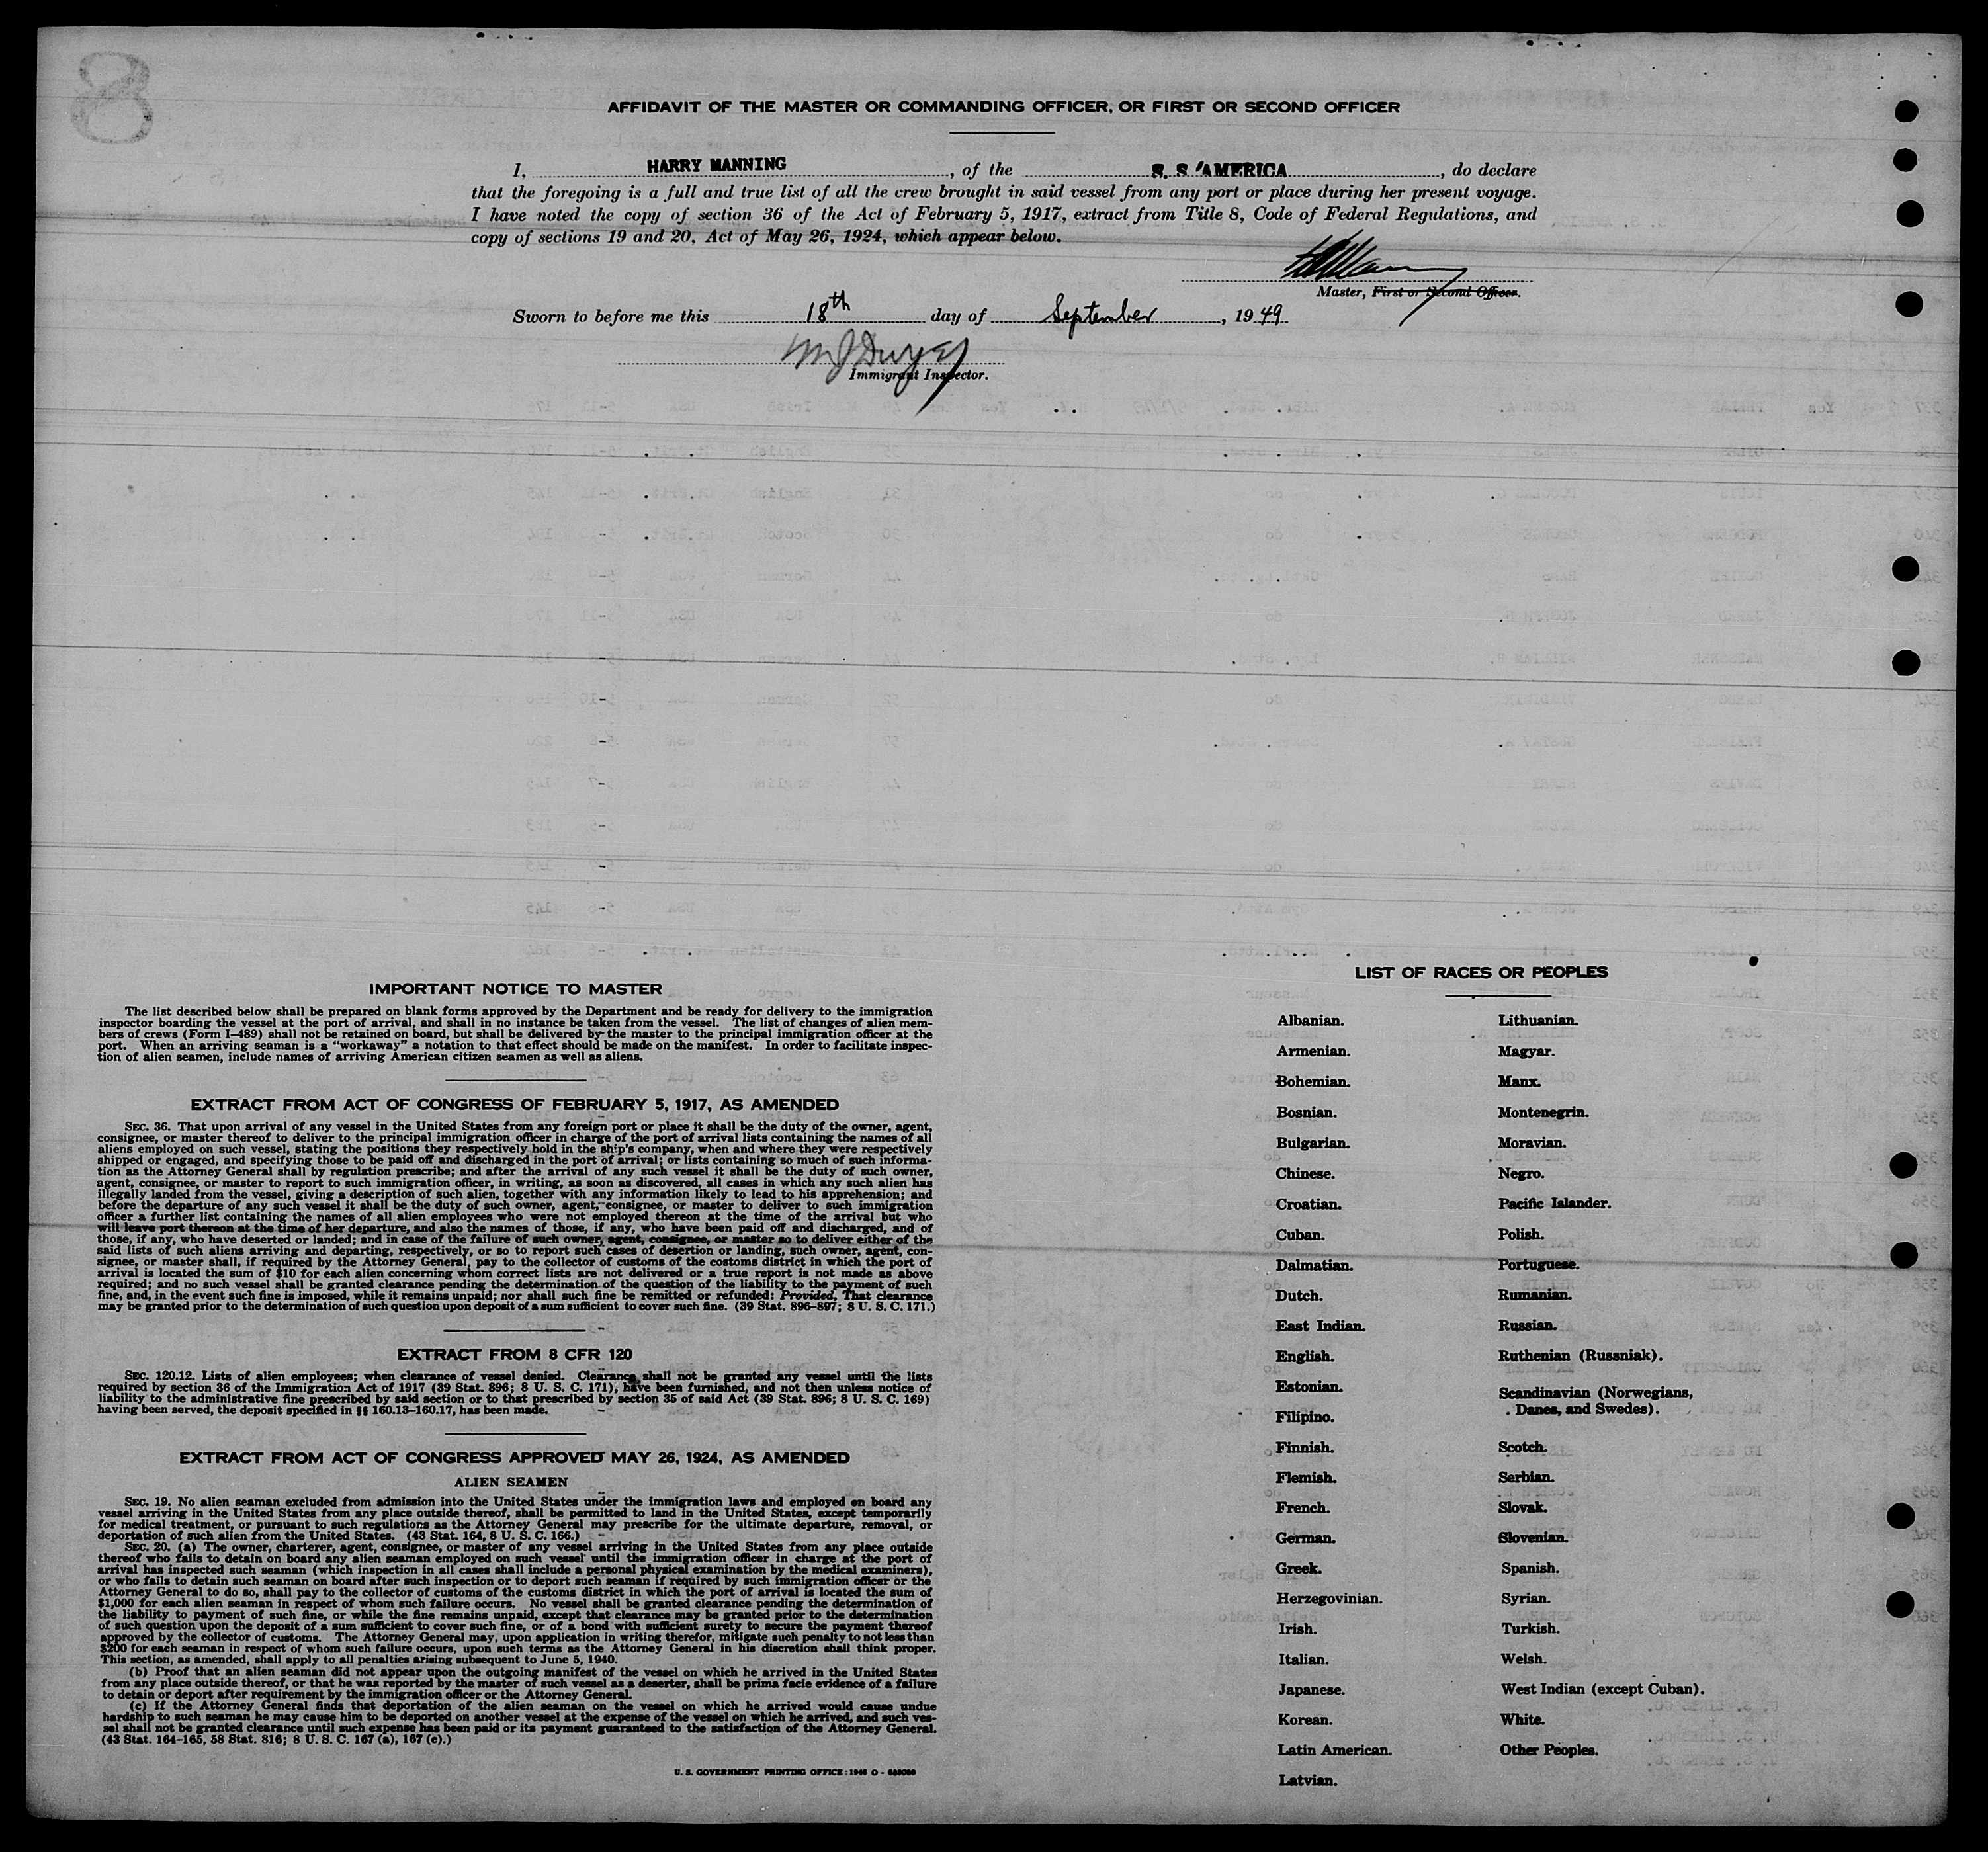 8
AFFIDAVIT OF THE MASTER OR COMMANDING OFFICER, OR FIRST OR SECOND OFFICER
I, HARRY MANNING, of the S. S. AMERICA, do declare
that the foregoing is a full and true list of all the crew brought in said vessel from any port or place during her present voyage.
I have noted the copy of section 36 of the Act of February 5, 1917, extract from Title 8, Code of Federal Regulations, and
copy of sections 19 and 20, Act of May 26, 1924, which appear below.
Master, First or Second Officer.
Sworn to before me this 18th day of September, 1949
Immigrant Inspector.
IMPORTANT NOTICE TO MASTER
The list described below shall be prepared on blank forms approved by the Department and be ready for delivery to the immigration
inspector boarding the vessel at the port of arrival, and shall in no instance be taken from the vessel. The list of changes of alien mem-
bers of crews (Form I-489) shall not be retained on board, but shall be delivered by the master to the principal immigration officer at the
port. When an arriving seaman is a "workaway" a notation to that effect should be made on the manifest. In order to facilitate inspec-
tion of alien seamen, include names of arriving American citizen seamen as well as aliens.
EXTRACT FROM ACT OF CONGRESS OF FEBRUARY 5, 1917, AS AMENDED
SEC. 36. That upon arrival of any vessel in the United States from any foreign port or place it shall be the duty of the owner, agent,
consignee, or master thereof to deliver to the principal immigration officer in charge of the port of arrival lists containing the names of all
aliens employed on such vessel, stating the positions they respectively hold in the ship's company, when and where they were respectively
shipped or engaged, and specifying those to be paid off and discharged in the port of arrival; or lists containing so much of such informa-
tion as the Attorney General shall by regulation prescribe; and after the arrival of any such vessel it shall be the duty of such owner,
agent, consignee, or master to report to such immigration officer, in writing, as soon as discovered, all cases in which any such alien has
illegally landed from the vessel, giving a description of such alien, together with any information likely to lead to his apprehension; and
before the departure of any such vessel it shall be the duty of such owner, agent, consignee, or master to deliver to such immigration
officer a further list containing the names of all alien employees who were not employed thereon at the time of the arrival but who
will leave port thereon at the time of her departure, and also the names of those, if any, who have been paid off and discharged, and of
those, if any, who have deserted or landed; and in case of the failure of such owner, agent, consignee, or master so to deliver either of the
said lists of such aliens arriving and departing, respectively, or so to report such cases of desertion or landing, such owner, agent, con-
signee, or master shall, if required by the Attorney General, pay to the collector of customs of the costoms district in which the port of
arrival is located the sum of $10 for each alien concerning whom correct lists are not delivered or a true report is not made as above
required; and no such vessel shall be granted clearance pending the determination of the question of the liability to the payment of such
fine, and, in the event such fine is imposed, while it remains unpaid; nor shall such fine be remitted or refunded: Provided, That clearance
may be granted prior to the determination of such question upon deposit of a sum sufficient to cover such fine. (39 Stat. 896-897; 8 U. S. C. 171.)
EXTRACT FROM 8 CFR 120
SEC. 120.12. Lists of alien employees; when clearance of vessel denied. Clearance shall not be granted any vessel until the lists
required by section 36 of the Immigration Act of 1917 (39 Stat. 896; 8 U. S. C. 171), have been furnished, and not then unless notice of
liability to the administrative fine prescribed by said section or to that prescribed by section 35 of said Act (39 Stat. 896; 8 U. S. C. 169)
having been served, the deposit specified in §§ 160.13-160.17, has been made.
EXTRACT FROM ACT OF CONGRESS APPROVED MAY 26, 1924, AS AMENDED
ALIEN SEAMEN
SEC. 19. No alien seaman excluded from admission into the United States under the immigration laws and employed on board any
vessel arriving in the United States from any place outside thereof, shall be permitted to land in the United States, except temporarily
for medical treatment, or pursuant to such regulations as the Attorney General may prescribe for the ultimate departure, removal, or
deportation of such alien from the United States. (43 Stat. 164, 8 U. S. C. 166.)
SEC. 20. (a) The owner, charterer, agent, consignee, or master of any vessel arriving in the United States from any place outside
thereof who fails to detain on board any alien seaman employed on such vessel until the immigration officer in charge at the port of
arrival has inspected such seaman (which inspection in all cases shall include a personal physical examination by the medical examiners),
or who fails to detain such seaman on board after such inspection or to deport such seaman if required by such immigration officer or the
Attorney General to do so, shall pay to the collector of customs of the customs district in which the port of arrival is located the sum of
$1,000 for each alien seaman in respect of whom such failure occurs. No vessel shall be granted clearance pending the determination of
the liability to payment of such fine, or while the fine remains unpaid, except that clearance may be granted prior to the determination
of such question upon the deposit of a sum sufficient to cover such fine, or of a bond with sufficient surety to secure the payment thereof
approved by the collector of customs. The Attorney General may, upon application in writing therefor, mitigate such penalty to not less than
$200 for each seaman in respect of whom such failure occurs, upon such terms as the Attorney General in his discretion shall think proper.
This section, as amended, shall apply to all penalties arising subsequent to June 5, 1940.
(b) Proof that an alien seaman did not appear upon the outgoing manifest of the vessel on which he arrived in the United States
from any place outside thereof, or that he was reported by the master of such vessel as a deserter, shall be prima facie evidence of a failure
to detain or deport after requirement by the immigration officer or the Attorney General.
(c) If the Attorney General finds that deportation of the alien seaman on the vessel on which he arrived would cause undue
hardship to such seaman he may cause him to be deported on another vessel at the expense of the vessel on which he arrived, and such ves-
sel shall not be granted clearance until such expense has been paid or its payment guaranteed to the satisfaction of the Attorney General.
(43 Stat. 164-165, 58 Stat. 816; 8 U. S. C. 167 (a), 167 (c).)
U. S. GOVERNMENT PRINTING OFFICE: 1946 O -
LIST OF RACES OR PEOPLES
Albanian.
Armenian.
Bohemian.
Bosnian.
Bulgarian.
Chinese.
Croatian.
Cuban.
Dalmatian.
Dutch.
East Indian.
English.
Estonian.
Filipino.
Finnish.
Flemish.
French.
German.
Greek.
Herzegovinian.
Irish.
Italian.
Japanese.
Korean.
Latin American.
Latvian.
Lithuanian.
Magyar.
Manx.
Montenegrin.
Moravian.
Negro.
Pacific Islander.
Polish.
Portuguese.
Rumanian.
Russian.
Ruthenian (Russniak).
Scandinavian (Norwegians,
Danes, and Swedes).
Scotch.
Serbian.
Slovak.
Slovenian.
Spanish.
Syrian.
Turkish.
Welsh.
West Indian (except Cuban).
White.
Other Peoples.